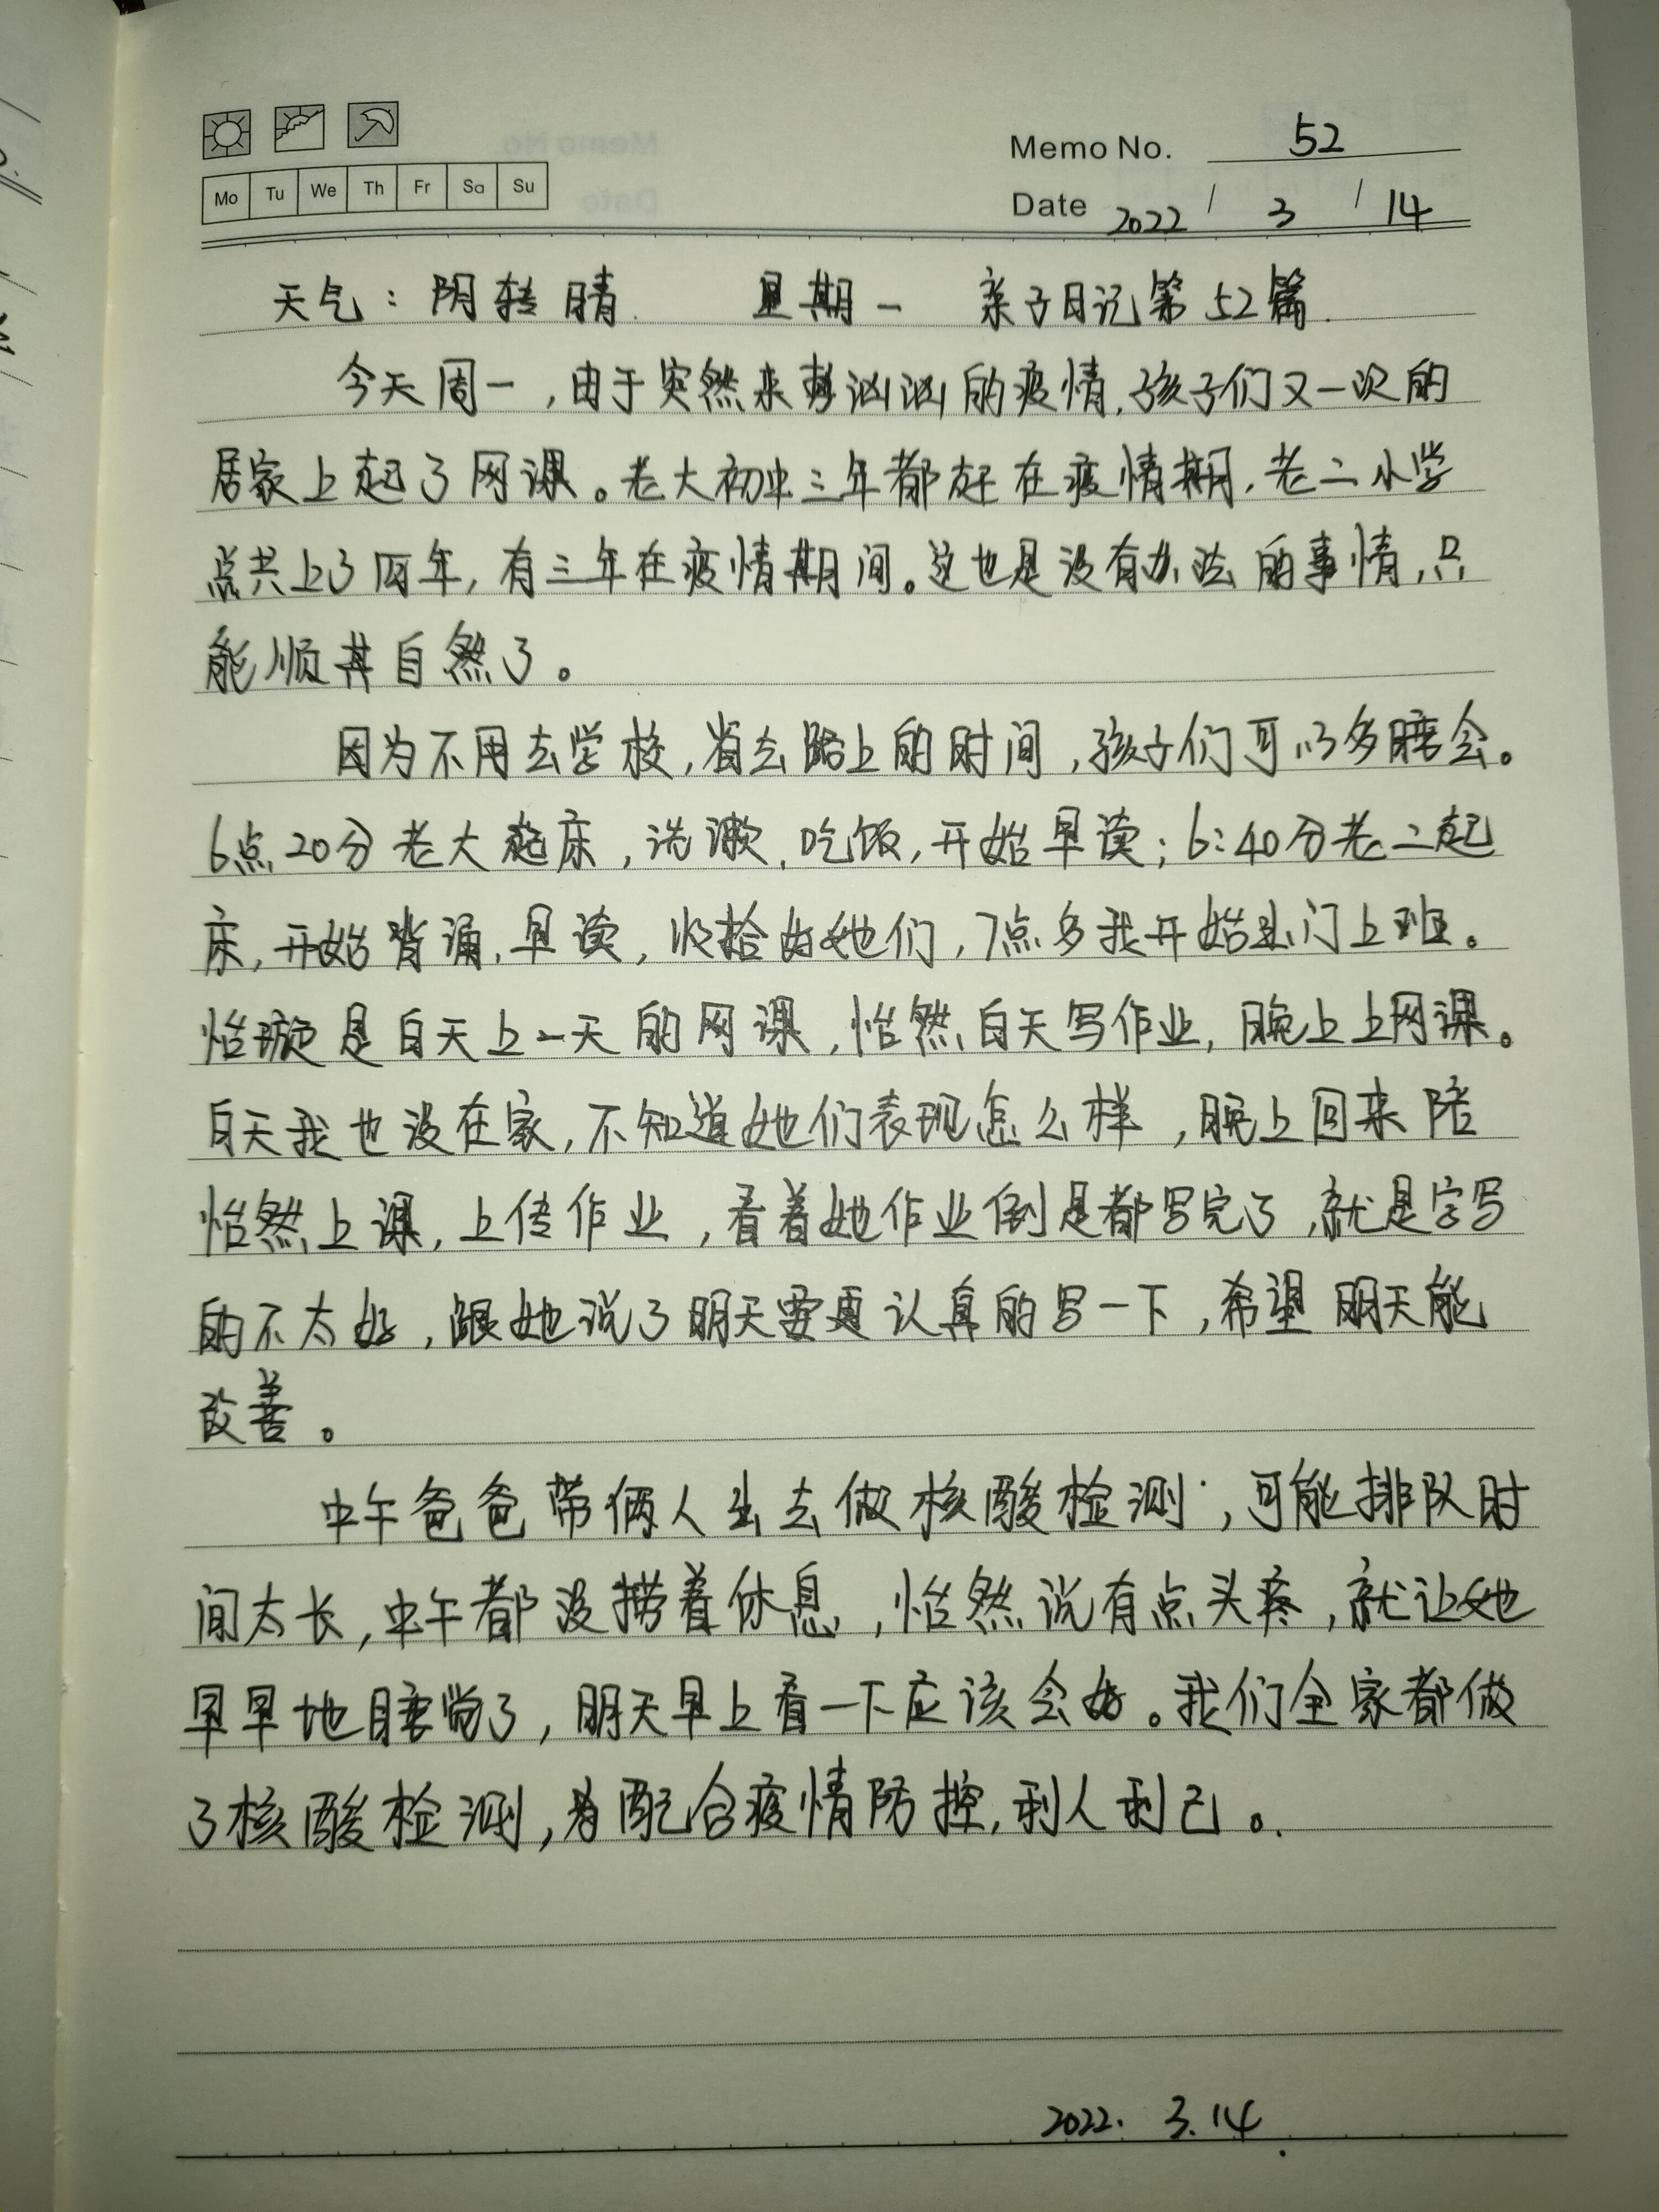 Memo No. 52
Mo Tu We Th Fr Sa Su
Date 2022 / 3 / 14
天气：阴转晴. 星期一 亲子日记第52篇.
今天周一，由于突然来势汹汹的疫情，孩子们又一次的
居家上起了网课。老大初中三年都赶在疫情期，老二小学
总共上了四年，有三年在疫情期间。这也是没有办法的事情，只
能顺其自然了。
因为不用去学校，省去路上的时间，孩子们可以多睡会。
6点20分老大起床，洗漱、吃饭，开始早读；6:40分老二起
床，开始背诵、早读，收拾好她们，7点多我开始出门上班。
怡璇是白天上一天的网课，怡然白天写作业，晚上上网课。
白天我也没在家，不知道她们表现怎么样，晚上回来陪
怡然上课，上传作业，看着她作业倒是都写完了，就是字写
的不太好，跟她说了明天要更认真的写一下，希望明天能
改善。
中午爸爸带俩人出去做核酸检测，可能排队时
间太长，中午都没捞着休息，怡然说有点头疼，就让她
早早地睡觉了，明天早上看一下应该会好。我们全家都做
了核酸检测，为配合疫情防控，利人利己。
2022. 3.14